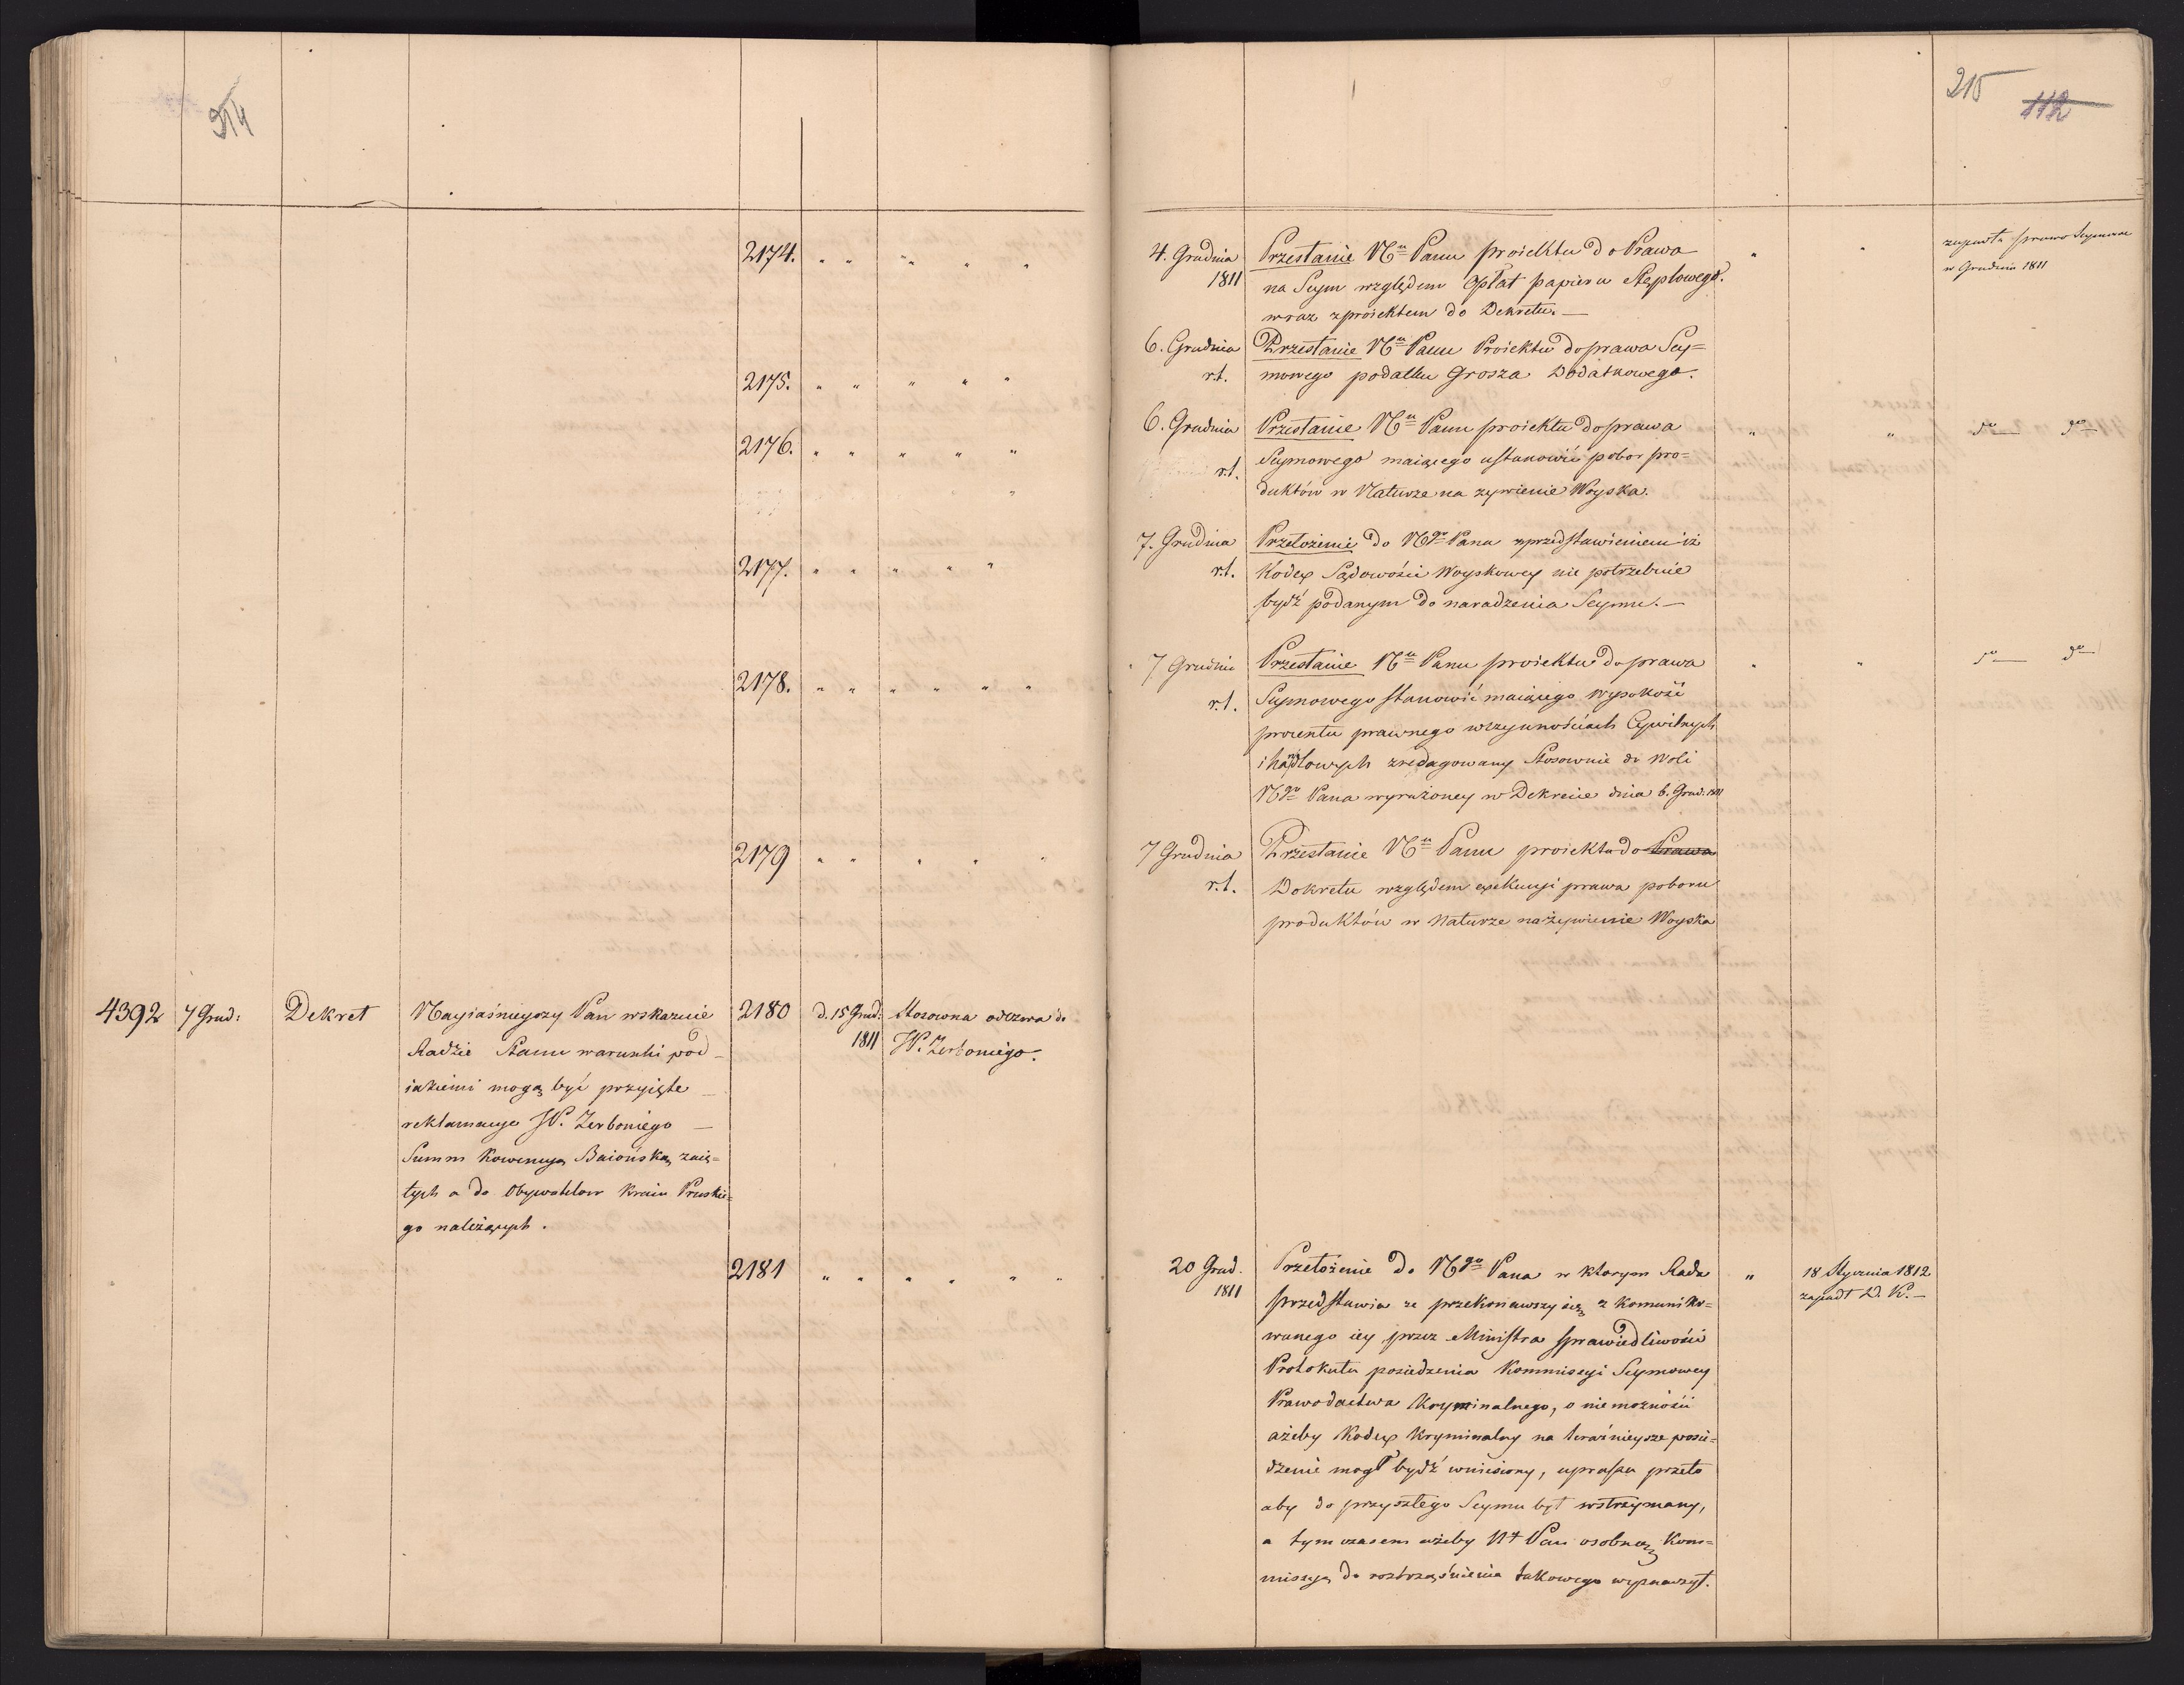 214
2174. " " " " "
2175. " " " " "
2176. " " " " "
"
2177. " " " " "
2178. " " " " " "
2179 " " " " "
4392 7 Grud: Dekret Nayiaśnieyszy Pan wskazuie 2180 d. 15 Grud: Stosowna odezwa do
Radzie Stanu warunki pod 1811 JP. Zerboniego.
iakiemi mogą być przyięte
reklamacye JP. Zerboniego
Summ Konwencyą Baiońską zaię=
tych a do Obywatelow Kraiu Pruskie=
go należących.
2181 " " " " " "
215 112
4. Grudnia Przesłanie Nu Panu proiektu do Prawa " " zapadło prawo Seymowe
1811 na Seym względem Opłat papieru Stęplowego. w Grudniu 1811
wraz z proiektem do Dekretu.
6. Grudnia Przesłanie Nu Panu Proiektu do prawa Sey=
r.t. mowego podatku Grosza Dodatkowego.
6. Grudnia Przesłanie Nu Panu proiektu do prawa " " do do
r.t. Seymowego maiącego ustanowić pobor pro=
duktów w Naturze na zywienie Woyska.
7. Grudnia Przełożenie do Ngo Pana z przedstawieniem iż
r.t. Kodex Sądowości Woyskowey nie potrzebuie
bydź podanym do naradzenia Seymu.
7 Grudnia Przesłanie Nu Panu proiektu do prawa " " do do
r.t. Seymowego stanowić maiącego wysokość
procentu prawnego w czynnościach Cywilnych
i handlowych zredagowany Stosownie do woli
Ngo Pana wyrażoney w Dekrecie dnia 6. Grud. 1811
7 Grudnia Przesłanie Nu Panu proiektu do Prawa
r.t. Dekretu względem exekucyi prawa poboru
produktów w Naturze na żywienie Woyska
20 Grud. Przełożenie do Ngo Pana w ktorym Rada " 18 Stycznia 1812
1811 przedstawia ze przekonawszy się z komuniko= zapadł D. K.
wanego iey przez Ministra sprawiedliwości
Protokułu posiedzenia Kommissyi Seymowey
Prawodactwa Kryminalnego, o niemożności
ażeby Kodex Kryminalny na teraźnieysze posie=
dzenie mogł bydź wniesiony, uprasza przeto
aby do przyszłego Seymu był wstrzymany,
a tymczasem ażeby N+ Pan osobną Kom=
missyą do roztrząśnienia takowego wyznaczył.